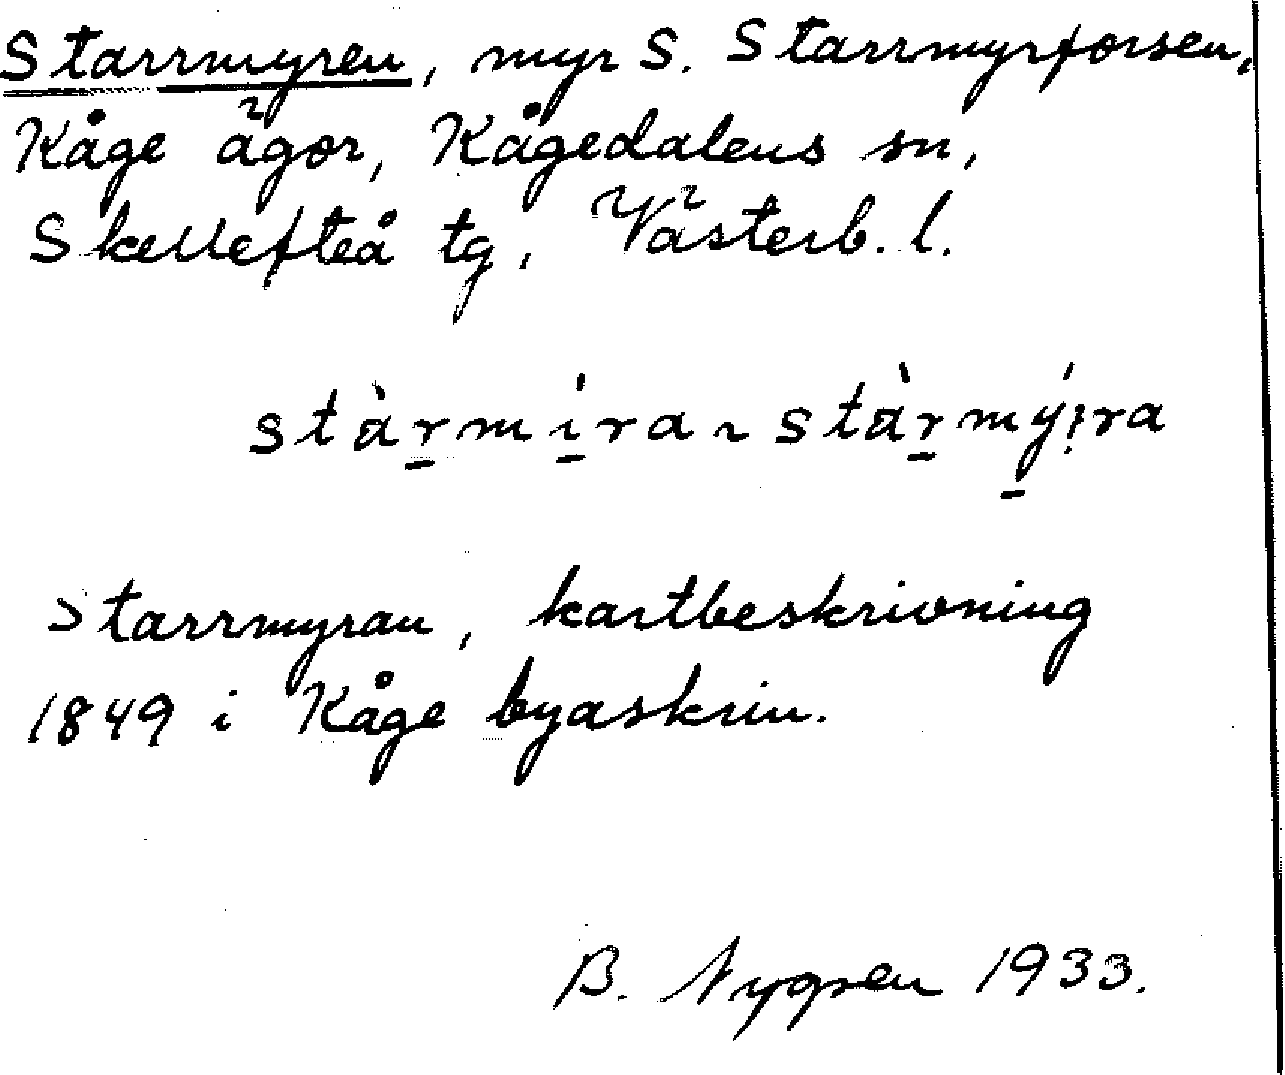 Starrmyren, myr S. Starrmyrforsen,
Kåge ägor, Kågedalens sn,
Skellefteå tg, Västerb. l.
stàr̠mí̠ra ~ stàr̠mý̠ra
Starrmyran, kartbeskrivning
1849 i Kåge byaskrin.
B. Nygren 1933.